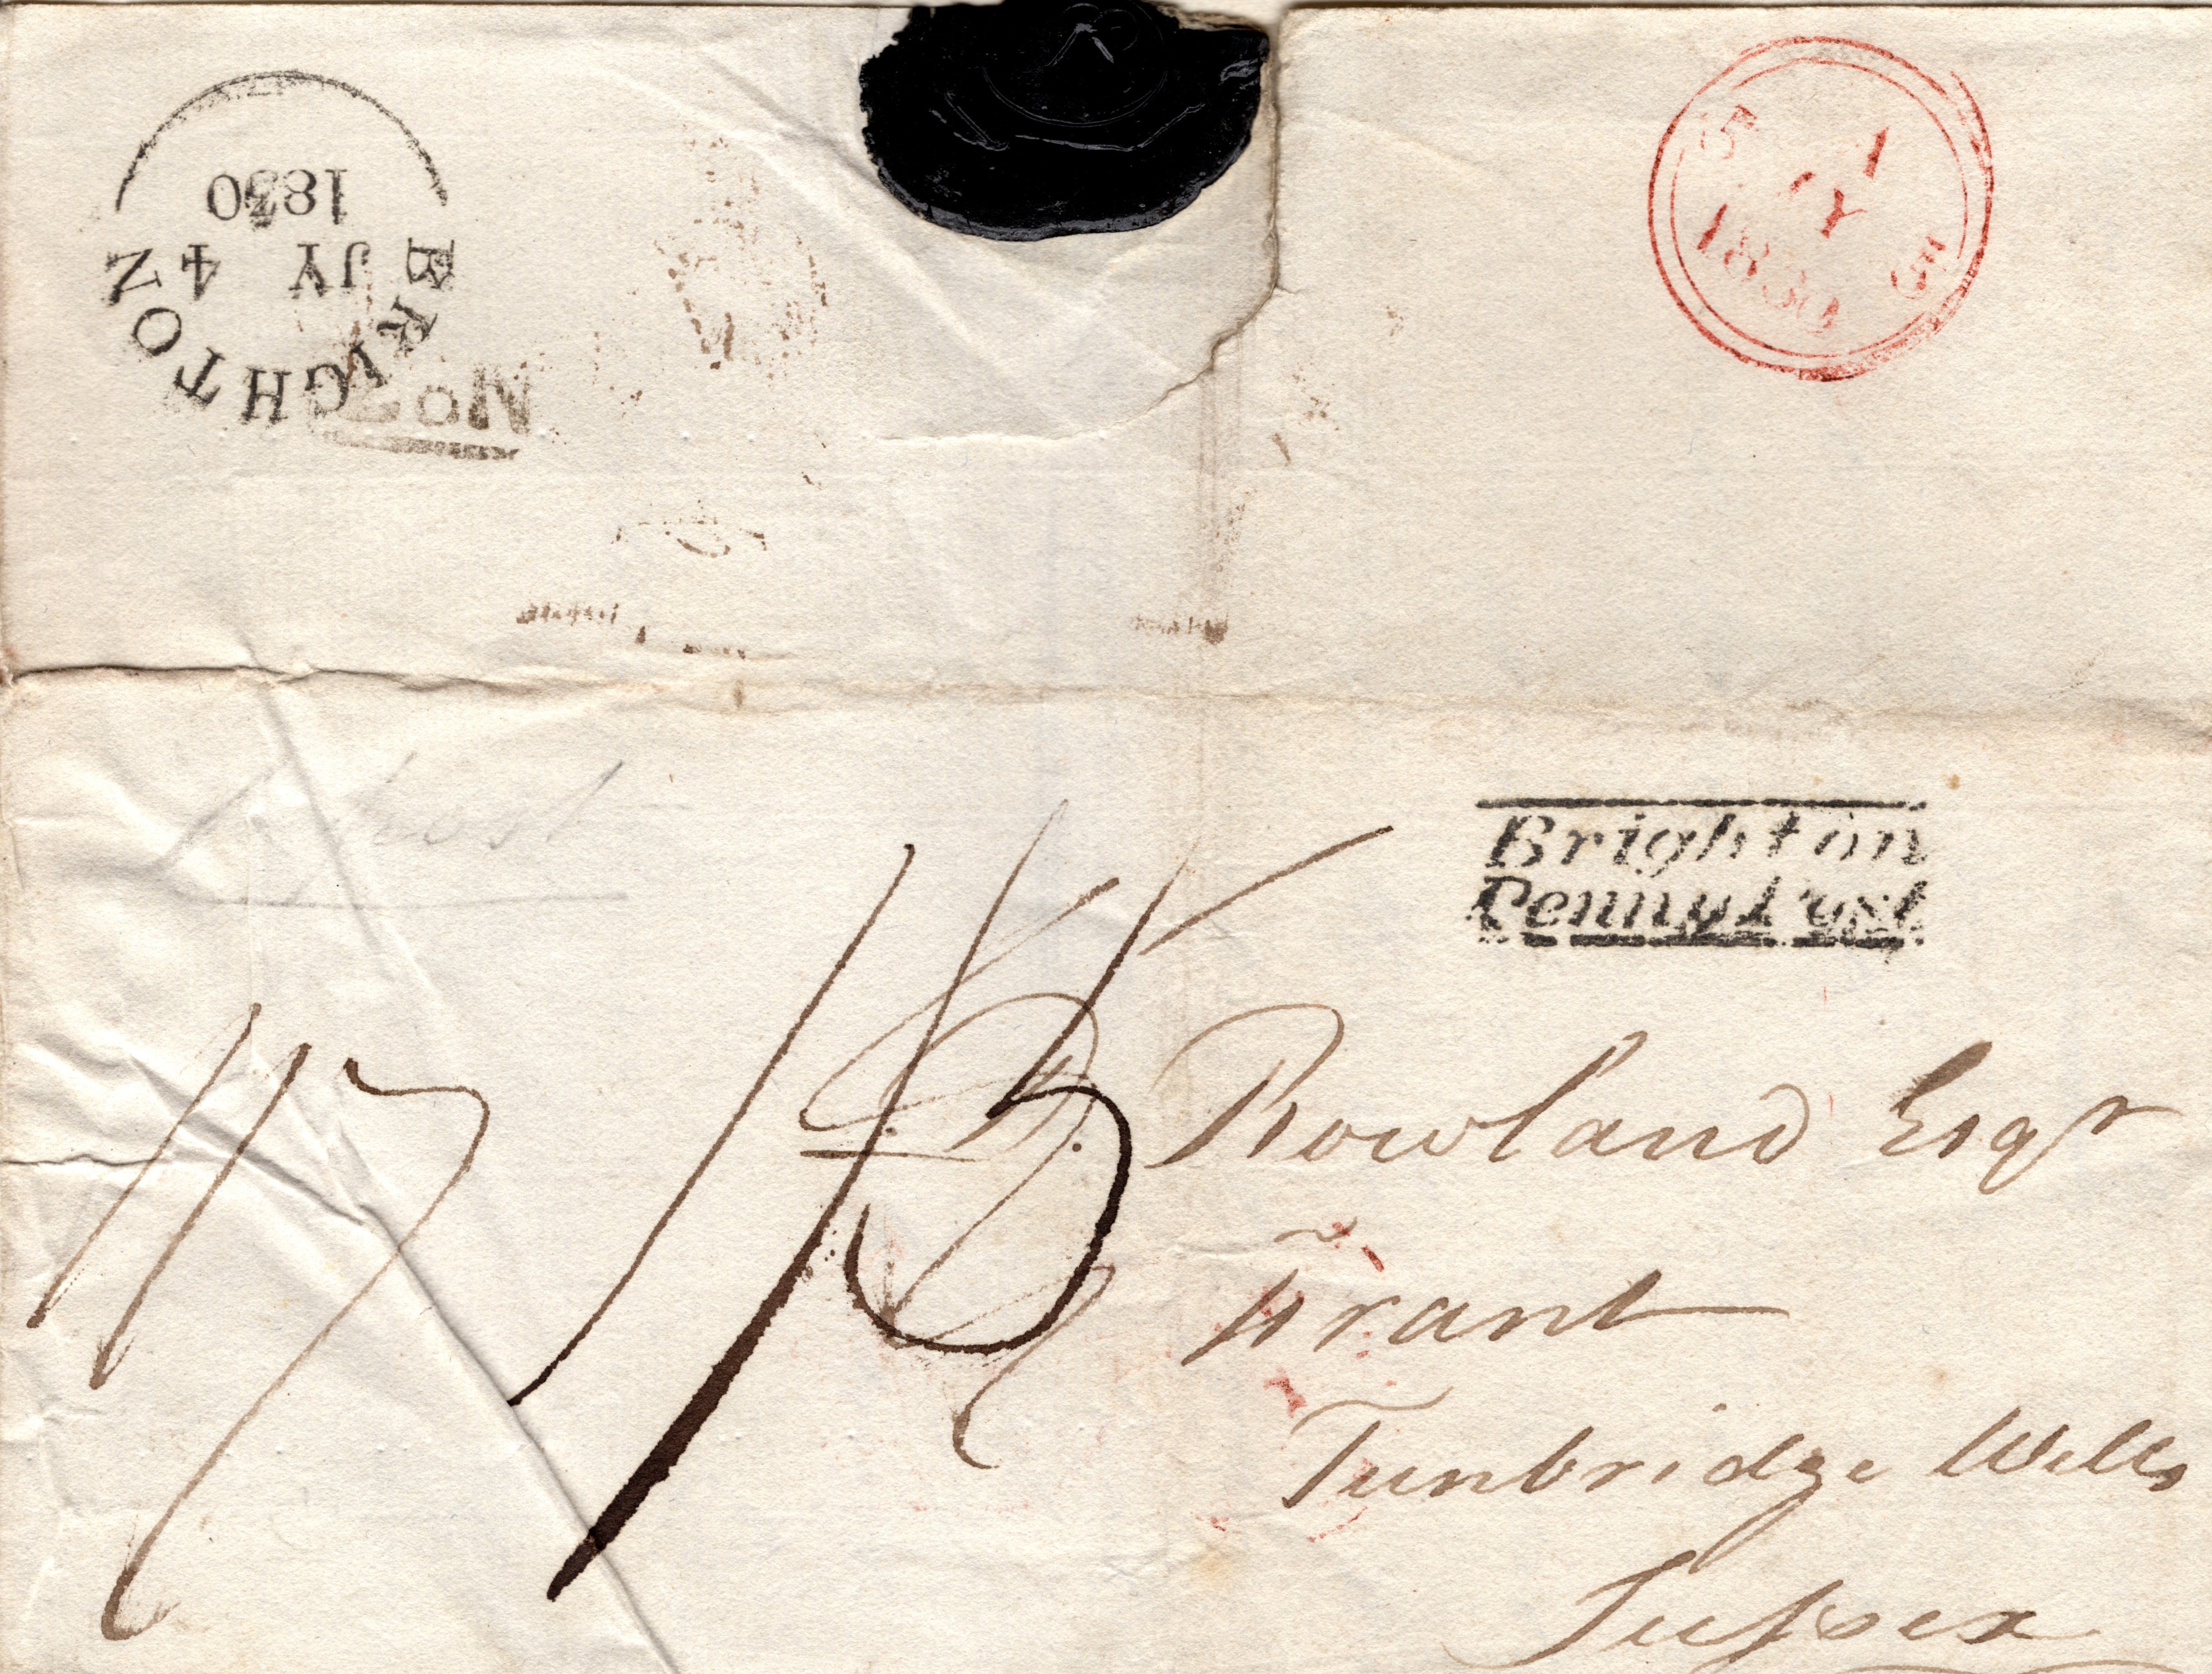 BRIGHTON
JY 4
1830
No
5 JY 5
1830
Brighton
Penny Post
1/5
D. Rowland Esqr
Frant
Tunbridge Wells
Sussex